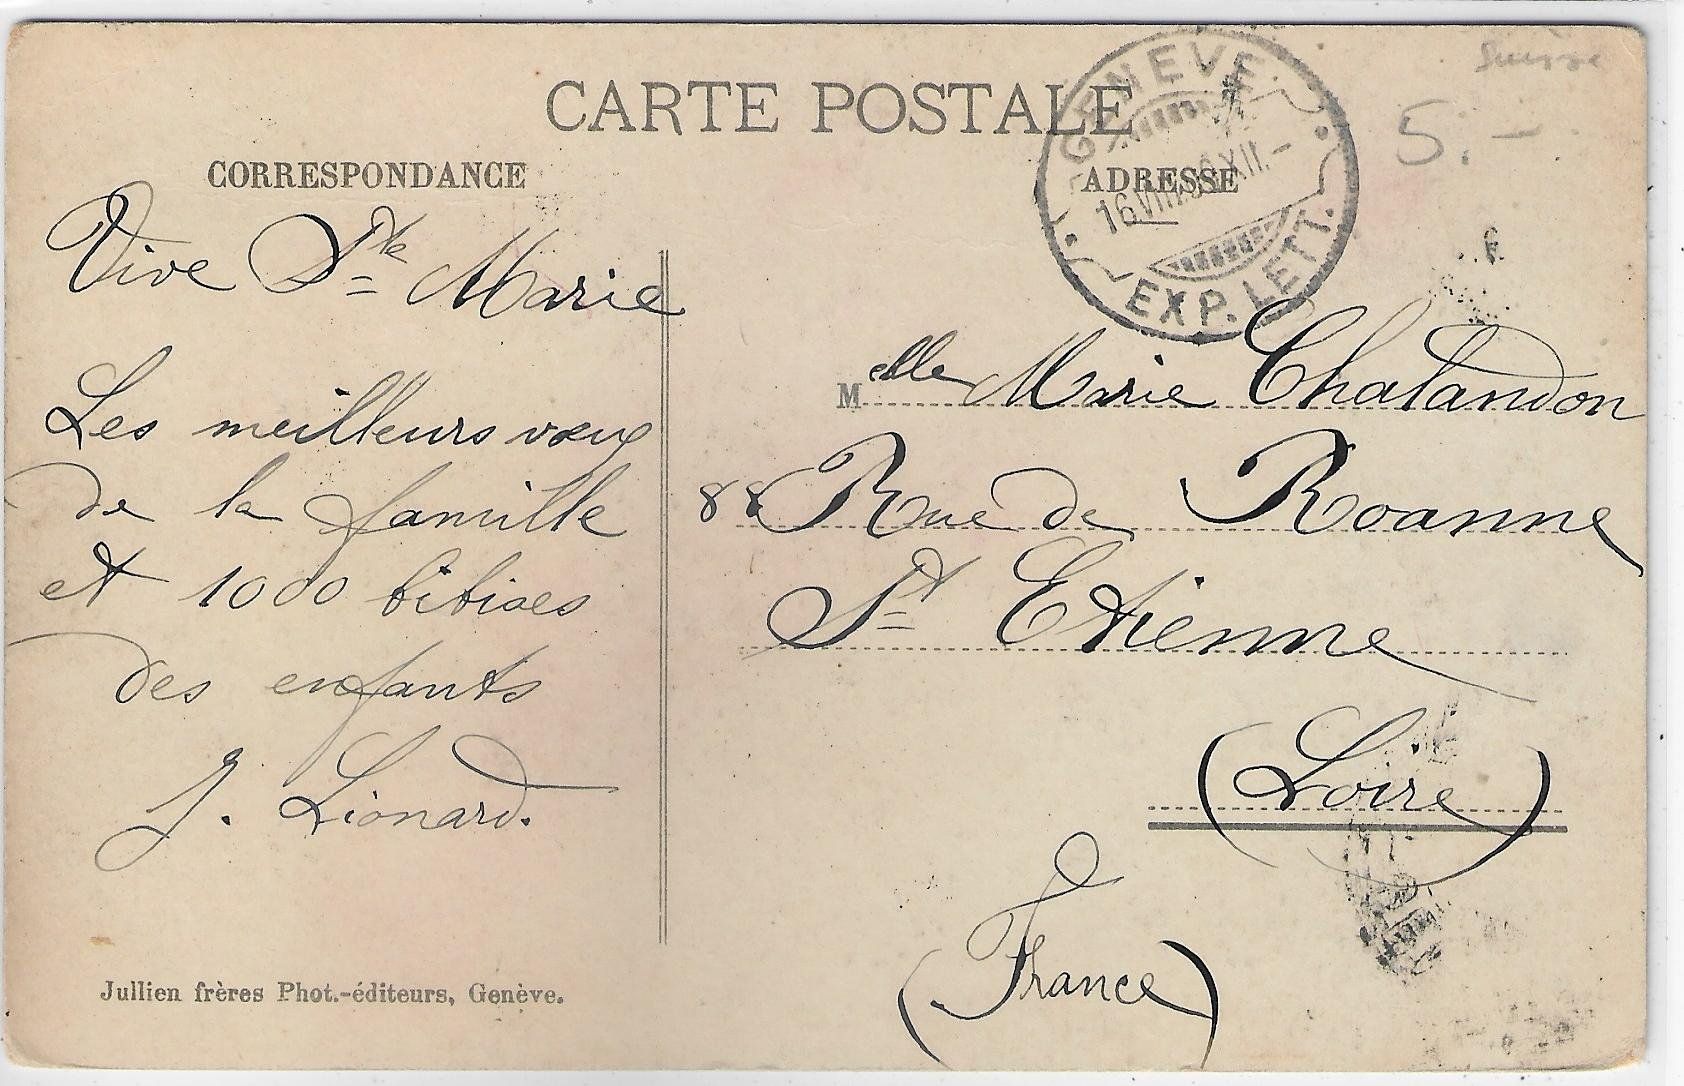 CARTE POSTALE
CORRESPONDANCE
ADRESSE
Suisse
5.-
GENEVE
EXP. LETT.
Vive Ste Marie
Les meilleurs vœux
de la famille
et 1000 bibises
des enfants
J. Lionard.
Melle Marie Chalandon
88 Rue de Roanne
St Etienne
(Loire)
(France)
Jullien frères Phot.-éditeurs, Genève.